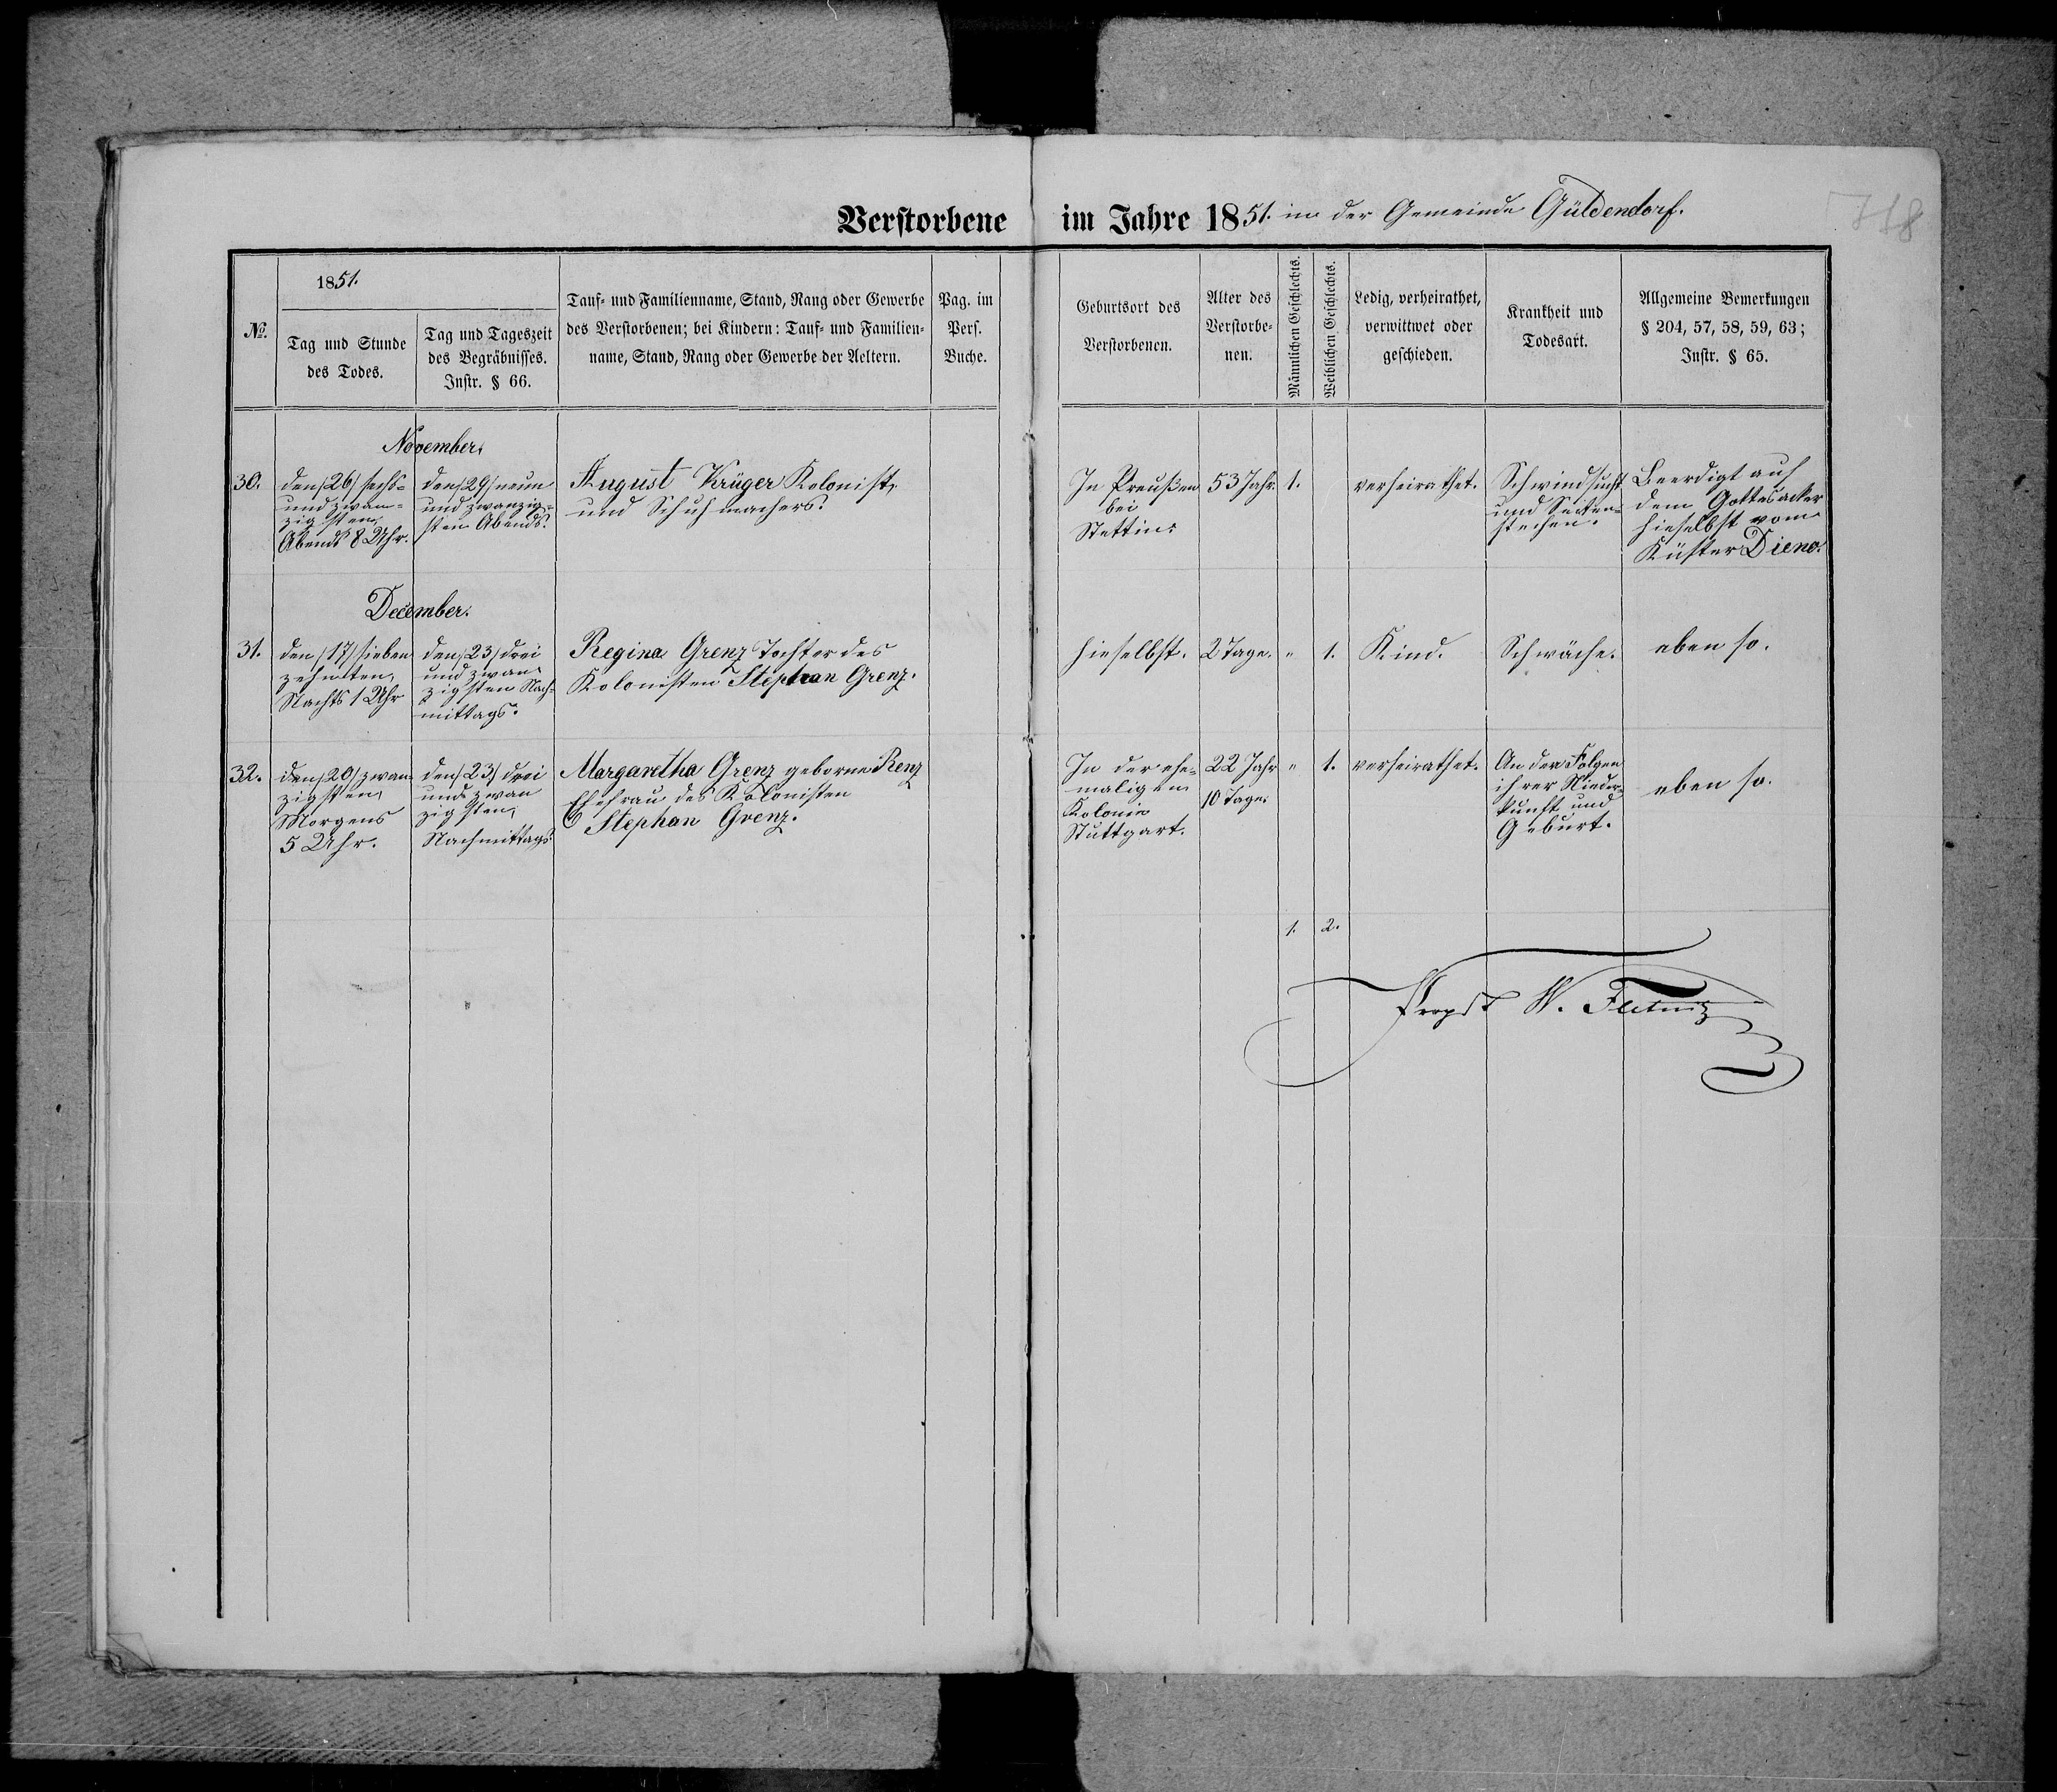 Verstorbene im Jahre 1851. in der Gemeinde Güldendorf.
718
№.
1851.
Tag und Stunde
des Todes.
Tag und Tageszeit
des Begräbnisses.
Instr. § 66.
Tauf- und Familienname, Stand, Rang oder Gewerbe
des Verstorbenen; bei Kindern: Tauf- und Familien-
name, Stand, Rang oder Gewerbe der Aeltern.
Pag. im
Pers.
Buche.
Geburtsort des
Verstorbenen.
Alter des
Verstorbe-
nen.
Männlichen Geschlechts.
Weiblichen Geschlechts.
Ledig, verheirathet,
verwittwet oder
geschieden.
Krankheit und
Todesart.
Allgemeine Bemerkungen
§ 204, 57, 58, 59, 63;
Instr. § 65.
November.
30.
den /26/ sechs-
und zwan-
zigsten,
Abends 8 Uhr.
den /29/ neun
und zwanzig-
sten Abends.
August Krüger Kolonist,
und Schuhmachers.
In Preußen
bei
Stettin.
53 Jahr.
1.
verheirathet.
Schwindsucht
und Seiten-
stechen.
Beerdigt auf
dem Gottesacker
hieselbst vom
Küster Diene.
December.
31.
den /17/ sieben
zehnten,
Nachts 1 Uhr
den /23/ drei
und zwan
zigsten Nach-
mittags.
Regina Grenz Tochter des
Kolonisten Stephan Grenz.
hieselbst.
2 Tage.
"
1.
Kind.
Schwäche.
eben so.
32.
den /20/ zwan
zigsten,
Morgens
5 Uhr.
den /23/ drei
und zwan
zigsten,
Nachmittags.
Margaretha Grenz geborne Renz
Ehefrau des Kolonisten
Stephan Grenz.
In der ehe-
maligen
Kolonie
Stuttgart.
22 Jahr
10 Tage.
"
1.
verheirathet.
An den Folgen
ihrer Nieder-
kunft und
Geburt.
eben so.
1. 2.
Propst W. Fletnitz